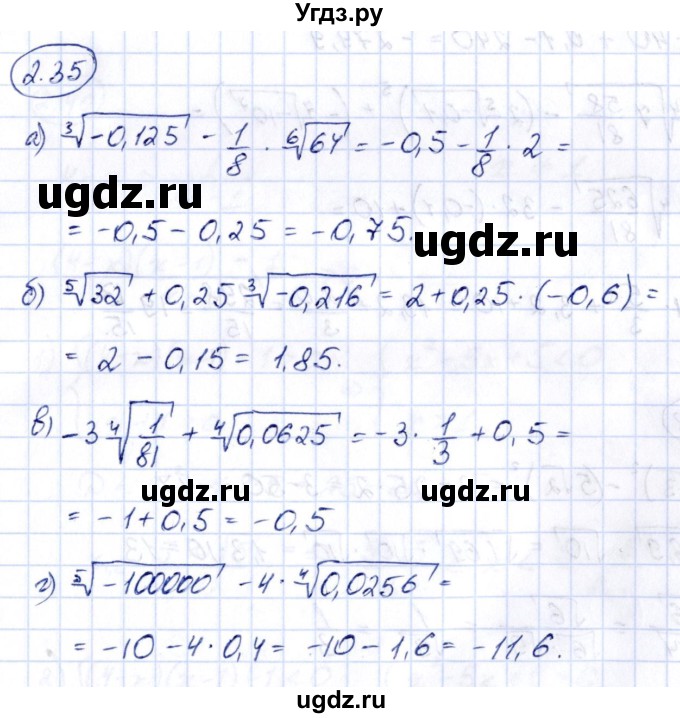 Угдз.ру
2.35
а) ∛(-0,125) - 1/8 · ⁶√64 = -0,5 - 1/8 · 2 =
ugdz.ru
ugdz.ru
= -0,5 - 0,25 = -0,75.
б) ⁵√32 + 0,25 ∛(-0,216) = 2 + 0,25 · (-0,6) =
= 2 - 0,15 = 1,85.
в) -3 ∜(1/81) + ∜(0,0625) = -3 · 1/3 + 0,5 =
ugdz.ru ugdz.ru
= -1 + 0,5 = -0,5
г) ⁵√(-100000) - 4 · ∜(0,0256) =
= -10 - 4 · 0,4 = -10 - 1,6 = -11,6.
ugdz.ru